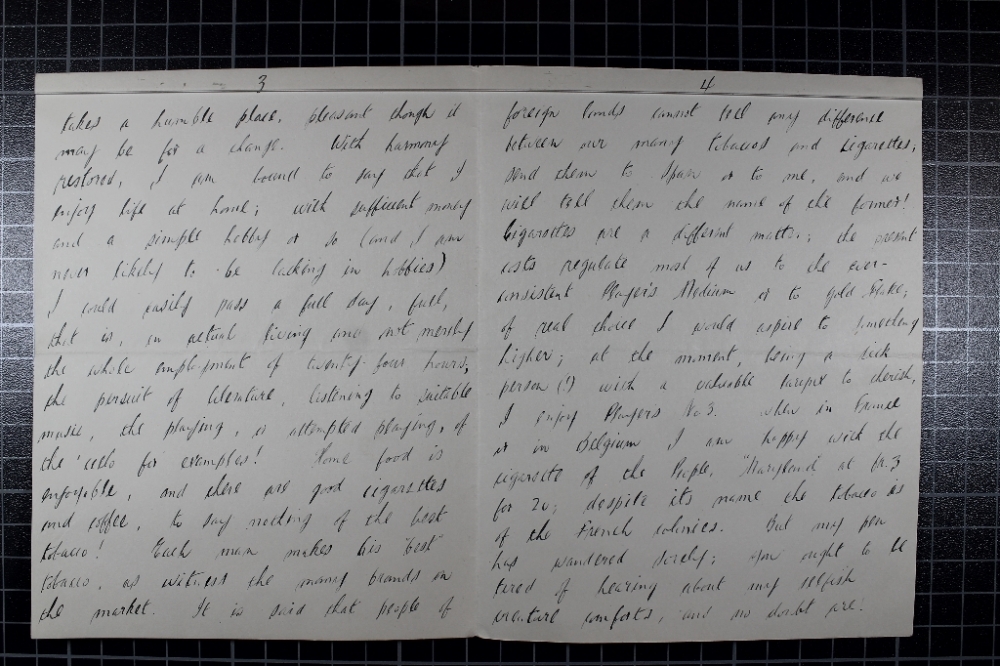 3
takes a humble place, pleasant though it
may be for a change. With harmony
restored, I am bound to say that I
enjoy life at home; with sufficient money
and a simple hobby or so (and I am
never likely to be lacking in hobbies)
I could easily pass a full day, full,
that is, in actual living and not merely
the whole employment of twenty-four hours;
the pursuit of literature, listening to suitable
music, the playing, or attempted playing, of
the 'cello for examples! Home food is
enjoyable, and there are good cigarettes
and coffee, to say nothing of the best
tobacco! Each man makes his best
tobacco, as witness the many brands on
the market. It is said that people of
4
foreign lands cannot tell any difference
between our many tobaccos and cigarettes;
send them to Spain or to me, and we
will tell them the name of the former!
Cigarettes are a different matter; the present
costs regulate most of us to the ever-
consistent Player's Medium or to Gold Flake;
of real choice I would aspire to something
higher; at the moment, being a sick
person (!) with a valuable larynx to cherish,
I enjoy Player's No 3. When in France
or in Belgium I am happy with the
cigarette of the People, "Maryland" at fr. 3
for 20; despite its name the tobacco is
of the French colonies. But my pen
has wandered sorely; you ought to be
tired of hearing about my selfish
creature comforts, and no doubt are!